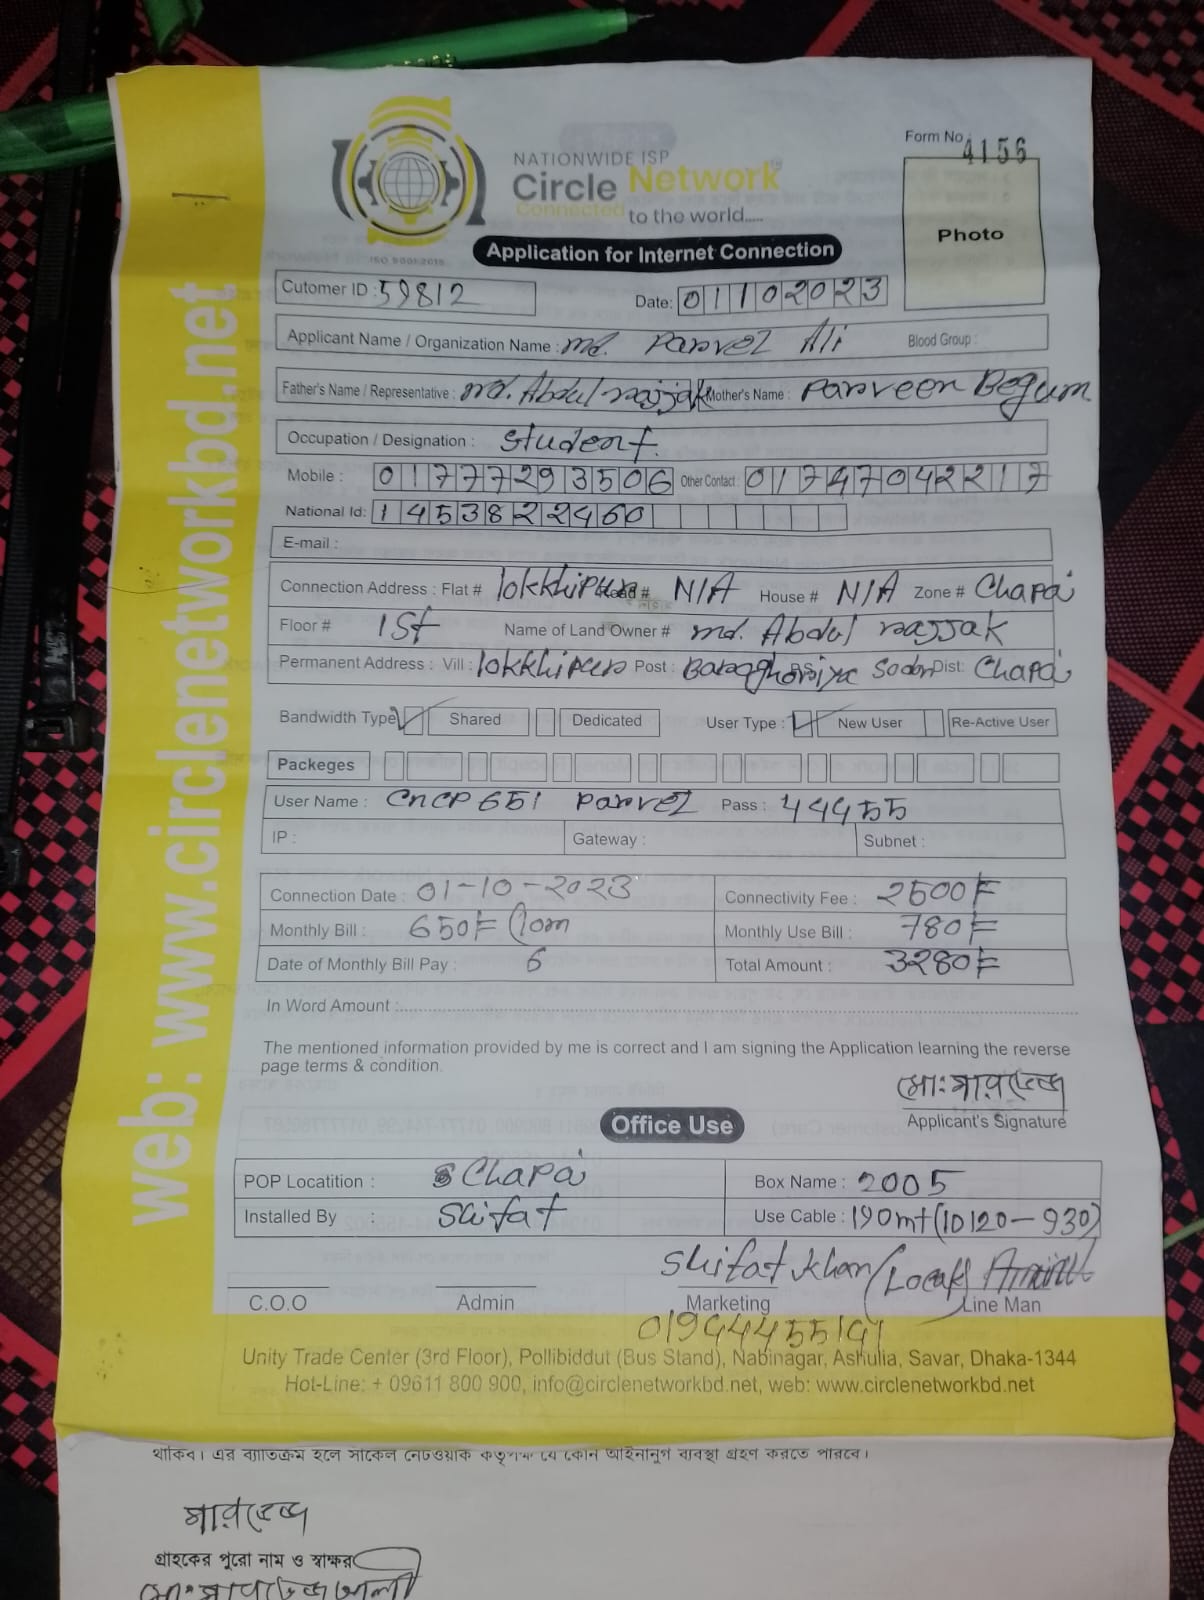 Form No : 4156
NATIONWIDE ISP
Circle Network
Connected to the world.....
ISO 9001:2015
Photo
Application for Internet Connection
Cutomer ID : 59812 Date: 01102023
Applicant Name / Organization Name : md. Parvez Ali Blood Group :
Father's Name / Representative : md. Abdul razjak Mother's Name : Parveen Begum
Occupation / Designation : Student
Mobile : 01777293506 Other Contact : 01747042217
National Id: 1453822460
E-mail :
Connection Address : Flat # lokkhipur Road # N/A House # N/A Zone # Chapa
Floor # 1St Name of Land Owner # md. Abdul razjak
Permanent Address : Vill : lokkhipur Post : Baraghoriya Sodor Dist: Chapa
Bandwidth Type Shared Dedicated User Type : New User Re-Active User
Packeges
User Name : CnCP651 Parvez Pass : 44455
IP : Gateway : Subnet :
Connection Date : 01-10-2023 Connectivity Fee : 2500/=
Monthly Bill : 650/= (10m Monthly Use Bill : 780/=
Date of Monthly Bill Pay : 6 Total Amount : 3280/=
In Word Amount :
The mentioned information provided by me is correct and I am signing the Application learning the reverse
page terms & condition.
মো: পারভেজ
Applicant's Signature
Office Use
POP Locatition : Chapa Box Name : 2005
Installed By : Shifat Use Cable : 190mt (10120-930)
Shifat Khan (Local)
C.O.O Admin Marketing Line Man
01944455191
Unity Trade Center (3rd Floor), Pollibiddut (Bus Stand), Nabinagar, Ashulia, Savar, Dhaka-1344
Hot-Line: + 09611 800 900, info@circlenetworkbd.net, web: www.circlenetworkbd.net
web: www.circlenetworkbd.net
থাকিব। এর ব্যাতিক্রম হলে সার্কেল নেটওয়ার্ক কতৃপক্ষ যে কোন আইনানুগ ব্যবস্থা গ্রহণ করতে পারবে।
পারভেজ
গ্রাহকের পুরো নাম ও স্বাক্ষর
মো: পারভেজ আলী